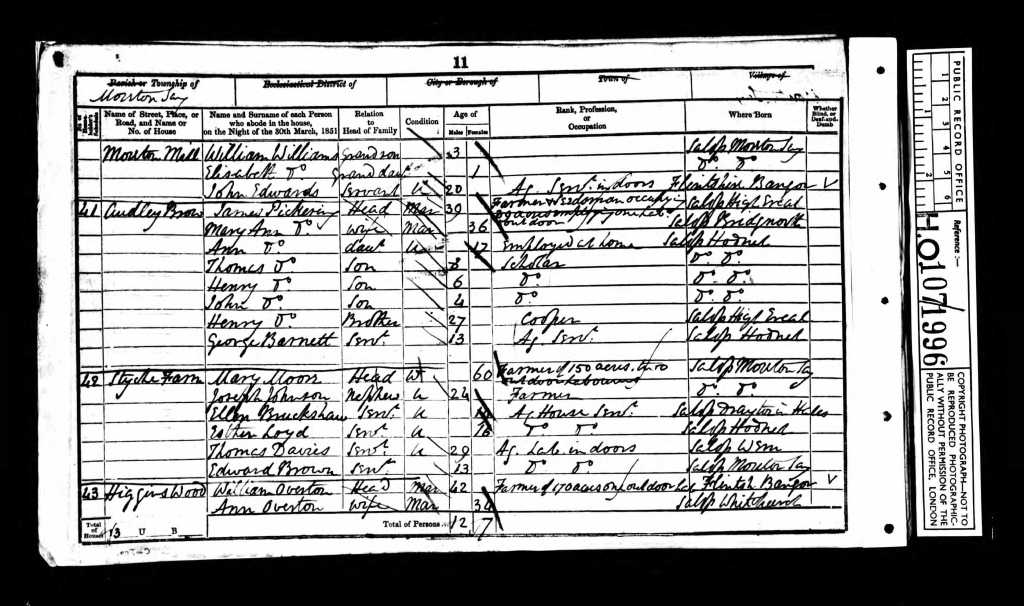 11
Parish or Township of
Ecclesiastical District of
City or Borough of
Town of
Village of
Moreton Say
Name of Street, Place, or Road, and Name or No. of House
Name and Surname of each Person who abode in the house, on the Night of the 30th March, 1851
Relation to Head of Family
Condition
Age of
Males Females
Rank, Profession, or Occupation
Where Born
Whether Blind, or Deaf-and-Dumb
Moreton Mill William Williams Grandson 3 Salop Moreton Say
Elisabeth Do Grand daur 1 Do Do
John Edwards Servant U 20 Ag. Servt. indoors Flintshire Bangor
41 Audley Brow James Pickering Head Mar 39 Farmer & Salop High Ercal
Mary Ann Do wife Mar 36 Salop Bridgnorth
Ann Do daur U 12 Employed at home Salop Hodnet
Thomas Do Son 8 Scholar Do Do
Henry Do Son 6 Do Do Do
John Do Son 4 Do Do Do
Henry Do Brother 27 Cooper Salop High Ercal
George Barnett Servt. 13 Ag. Servt. Salop Hodnet
42 Styche Farm Mary Moor Head W 60 Farmer of 150 acres Salop Moreton Say
Joseph Johnson Nephew U 24 Farmer Do Do
Ellen Bruckshaw Servt. U House Servt. Salop Drayton in Hales
Esther Loyd Servt. U 16 Do Do Salop Hodnet
Thomas Davies Servt. U 29 Ag. Lab. indoors Salop Wem
Edward Brown Servt. 13 Do Do Salop Moreton Say
43 Higgins Wood William Overton Head Mar 42 Farmer of 170 acres Flintsh Bangor
Ann Overton wife Mar 34 Salop Whitchurch
Total of Houses 3 U B
Total of Persons 12 7
PUBLIC RECORD OFFICE
1 2 3 4 5 6
Reference :—
H.O. 107/1996
COPYRIGHT PHOTOGRAPH—NOT TO
BE REPRODUCED PHOTOGRAPHIC-
ALLY WITHOUT PERMISSION OF THE
PUBLIC RECORD OFFICE, LONDON